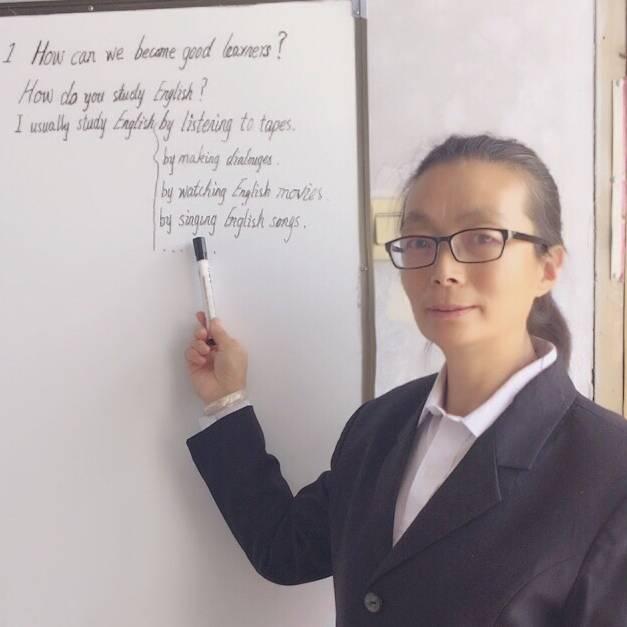 1 How can we become good learners?
How do you study English?
I usually study English by listening to tapes.
by making dialouges.
by watching English movies.
by singing English songs.
......